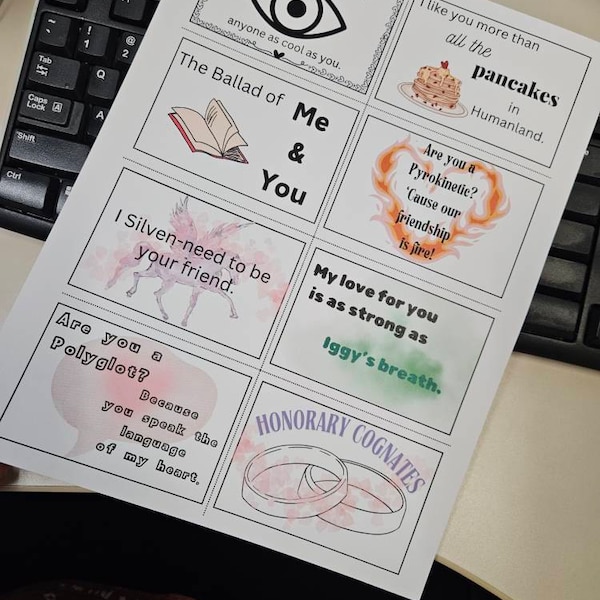 anyone as cool as you.
I like you more than
all the
pancakes
in
Humanland.
The Ballad of
Me
&
You
Are you a
Pyrokinetic?
'Cause our
friendship
is fire!
I Silven-need to be
your friend.
My love for you
is as strong as
Iggy's breath.
Are you a
Polyglot?
Because
you speak the
language
of my heart.
HONORARY COGNATES
~
!
1
@
2
Tab
Q
Caps
Lock
A
A
Shift
Ctrl